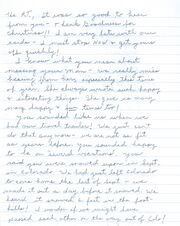 Hi RT, It was so good to hear
from you - & thank Goodness for
Christmas!! I am very late with our
cards - I must stop now & get yours
off quickly!
I know what you mean about
missing your Mom - we really miss
hearing from her, especially this time
of year. She always wrote such happy
& interesting things. She gave us many
many happy & fun times too!
You sounded like us when we
had our travel trailer! We just can't
do that any more - we are not so fit
as years before. You sounded happy
to be in several locations. You
said you were snowed upon in Sept.
in Colorado. We had just left Colorado
for some home the last of Sept - we
made it out a day before it snowed. We
heard it snowed 6 feet in the foot-
hills! I wonder if we might have
passed each other on the way out of Colo!